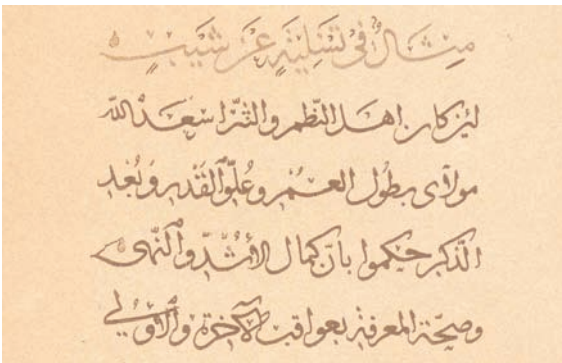 مِثَالٌ فِي تَسْلِيَةٍ عَنْ شَيْبٍ
لئن كان اهل النّظم والنّثر اسعد الله
مولاى بطُول العمُر وعُلوّ القَدْر وبُعْدِ
الذكر حكموا بانّ كمال الأشُدّ والنّهى
وصحّة المعرفة بعواقب الآخرة والأولي